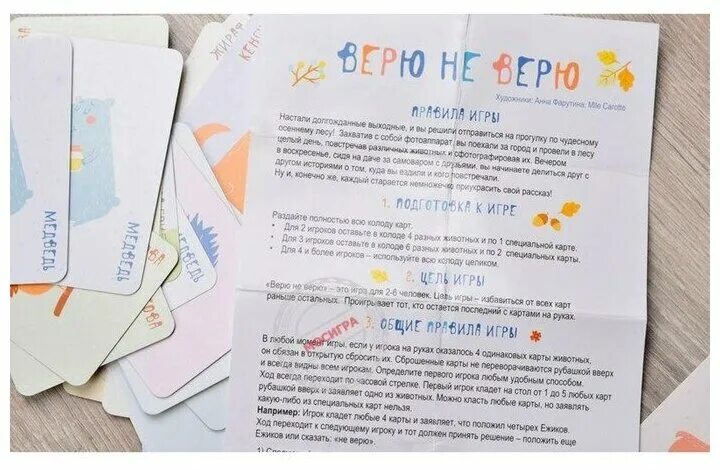 ВЕРЮ НЕ ВЕРЮ
Художники: Анна Фарутина: Mile Carotte
ПРАВИЛА ИГРЫ
Настали долгожданные выходные, и вы решили отправиться на прогулку по чудесному
осеннему лесу! Захватив с собой фотоаппарат, вы поехали за город и провели в лесу
целый день, повстречав различных животных и сфотографировав их. Вечером
в воскресенье, сидя на даче за самоваром с друзьями, вы начинаете делиться друг с
другом историями о том, куда вы ездили и кого повстречали.
Ну и, конечно же, каждый старается немножечко приукрасить свой рассказ!
1. ПОДГОТОВКА К ИГРЕ
Раздайте полностью всю колоду карт.
• Для 2 игроков оставьте в колоде 4 разных животных и по 1 специальной карте.
• Для 3 игроков оставьте в колоде 6 разных животных и по 2 специальных карты.
• Для 4 и более игроков – используйте всю колоду целиком.
2. ЦЕЛЬ ИГРЫ
«Верю не верю» – это игра для 2-6 человек. Цель игры – избавиться от всех карт
раньше остальных. Проигрывает тот, кто остается последний с картами на руках.
МОСИГРА
3. ОБЩИЕ ПРАВИЛА ИГРЫ
В любой момент игры, если у игрока на руках оказалось 4 одинаковых карты животных,
он обязан в открытую сбросить их. Сброшенные карты не переворачиваются рубашкой вверх
и всегда видны всем игрокам. Определите первого игрока любым удобным способом.
Ход всегда переходит по часовой стрелке. Первый игрок кладет на стол от 1 до 5 любых карт
рубашкой вверх и заявляет одно из животных. Можно класть любые карты, но заявлять
какую-либо из специальных карт нельзя.
Например: Игрок кладет любые 4 карты и заявляет, что положил четырех Ежиков.
Ход переходит к следующему игроку и тот должен принять решение – положить еще
Ежиков или сказать: «не верю».
МЕДВЕДЬ
МЕДВЕДЬ
ЖИРАФ